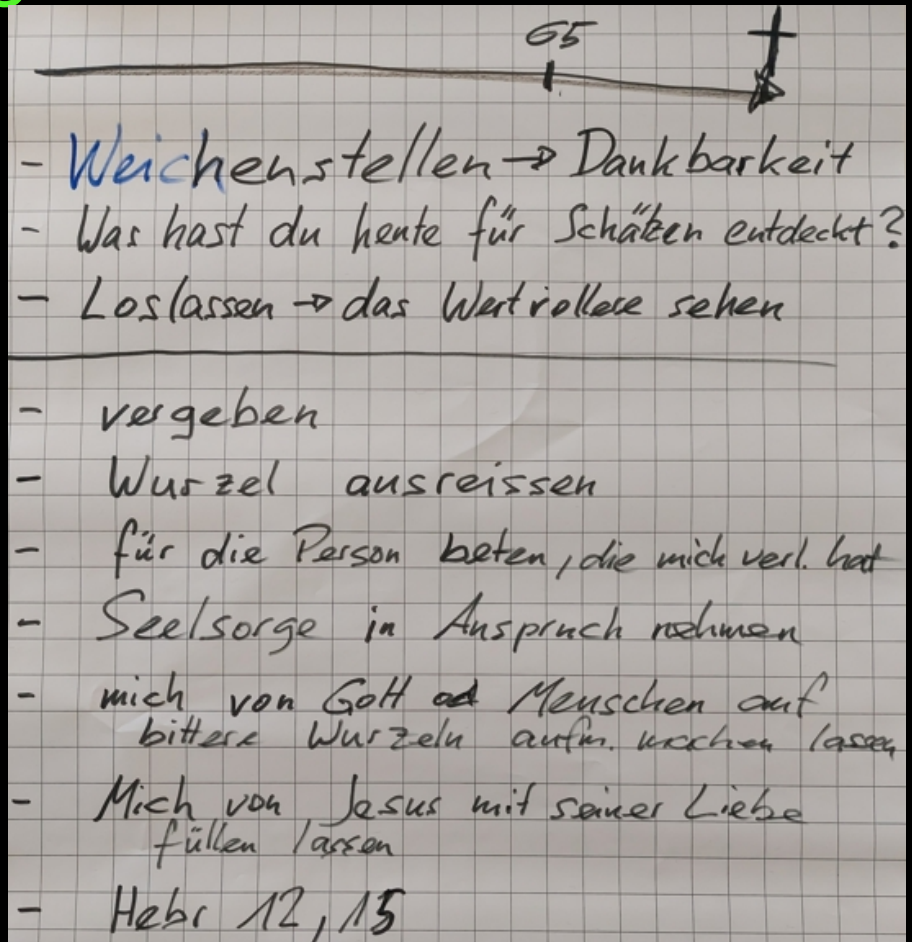 65
- Weichenstellen → Dankbarkeit
- Was hast du heute für Schätzen entdeckt?
- Loslassen → das Wertvollere sehen
- vergeben
- Wurzel ausreissen
- für die Person beten, die mich verl. hat
- Seelsorge in Anspruch nehmen
- mich von Gott od Menschen auf
bittere Wurzeln aufm. machen lassen
- Mich von Jesus mit seiner Liebe
füllen lassen
- Hebr 12, 15